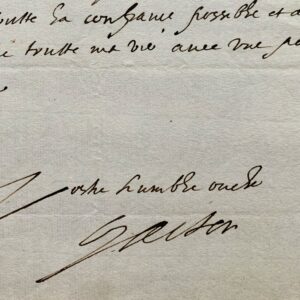 toutte la confiance possible et a
toutte ma vie avec une pa
Vostre humble oncle
Gaston